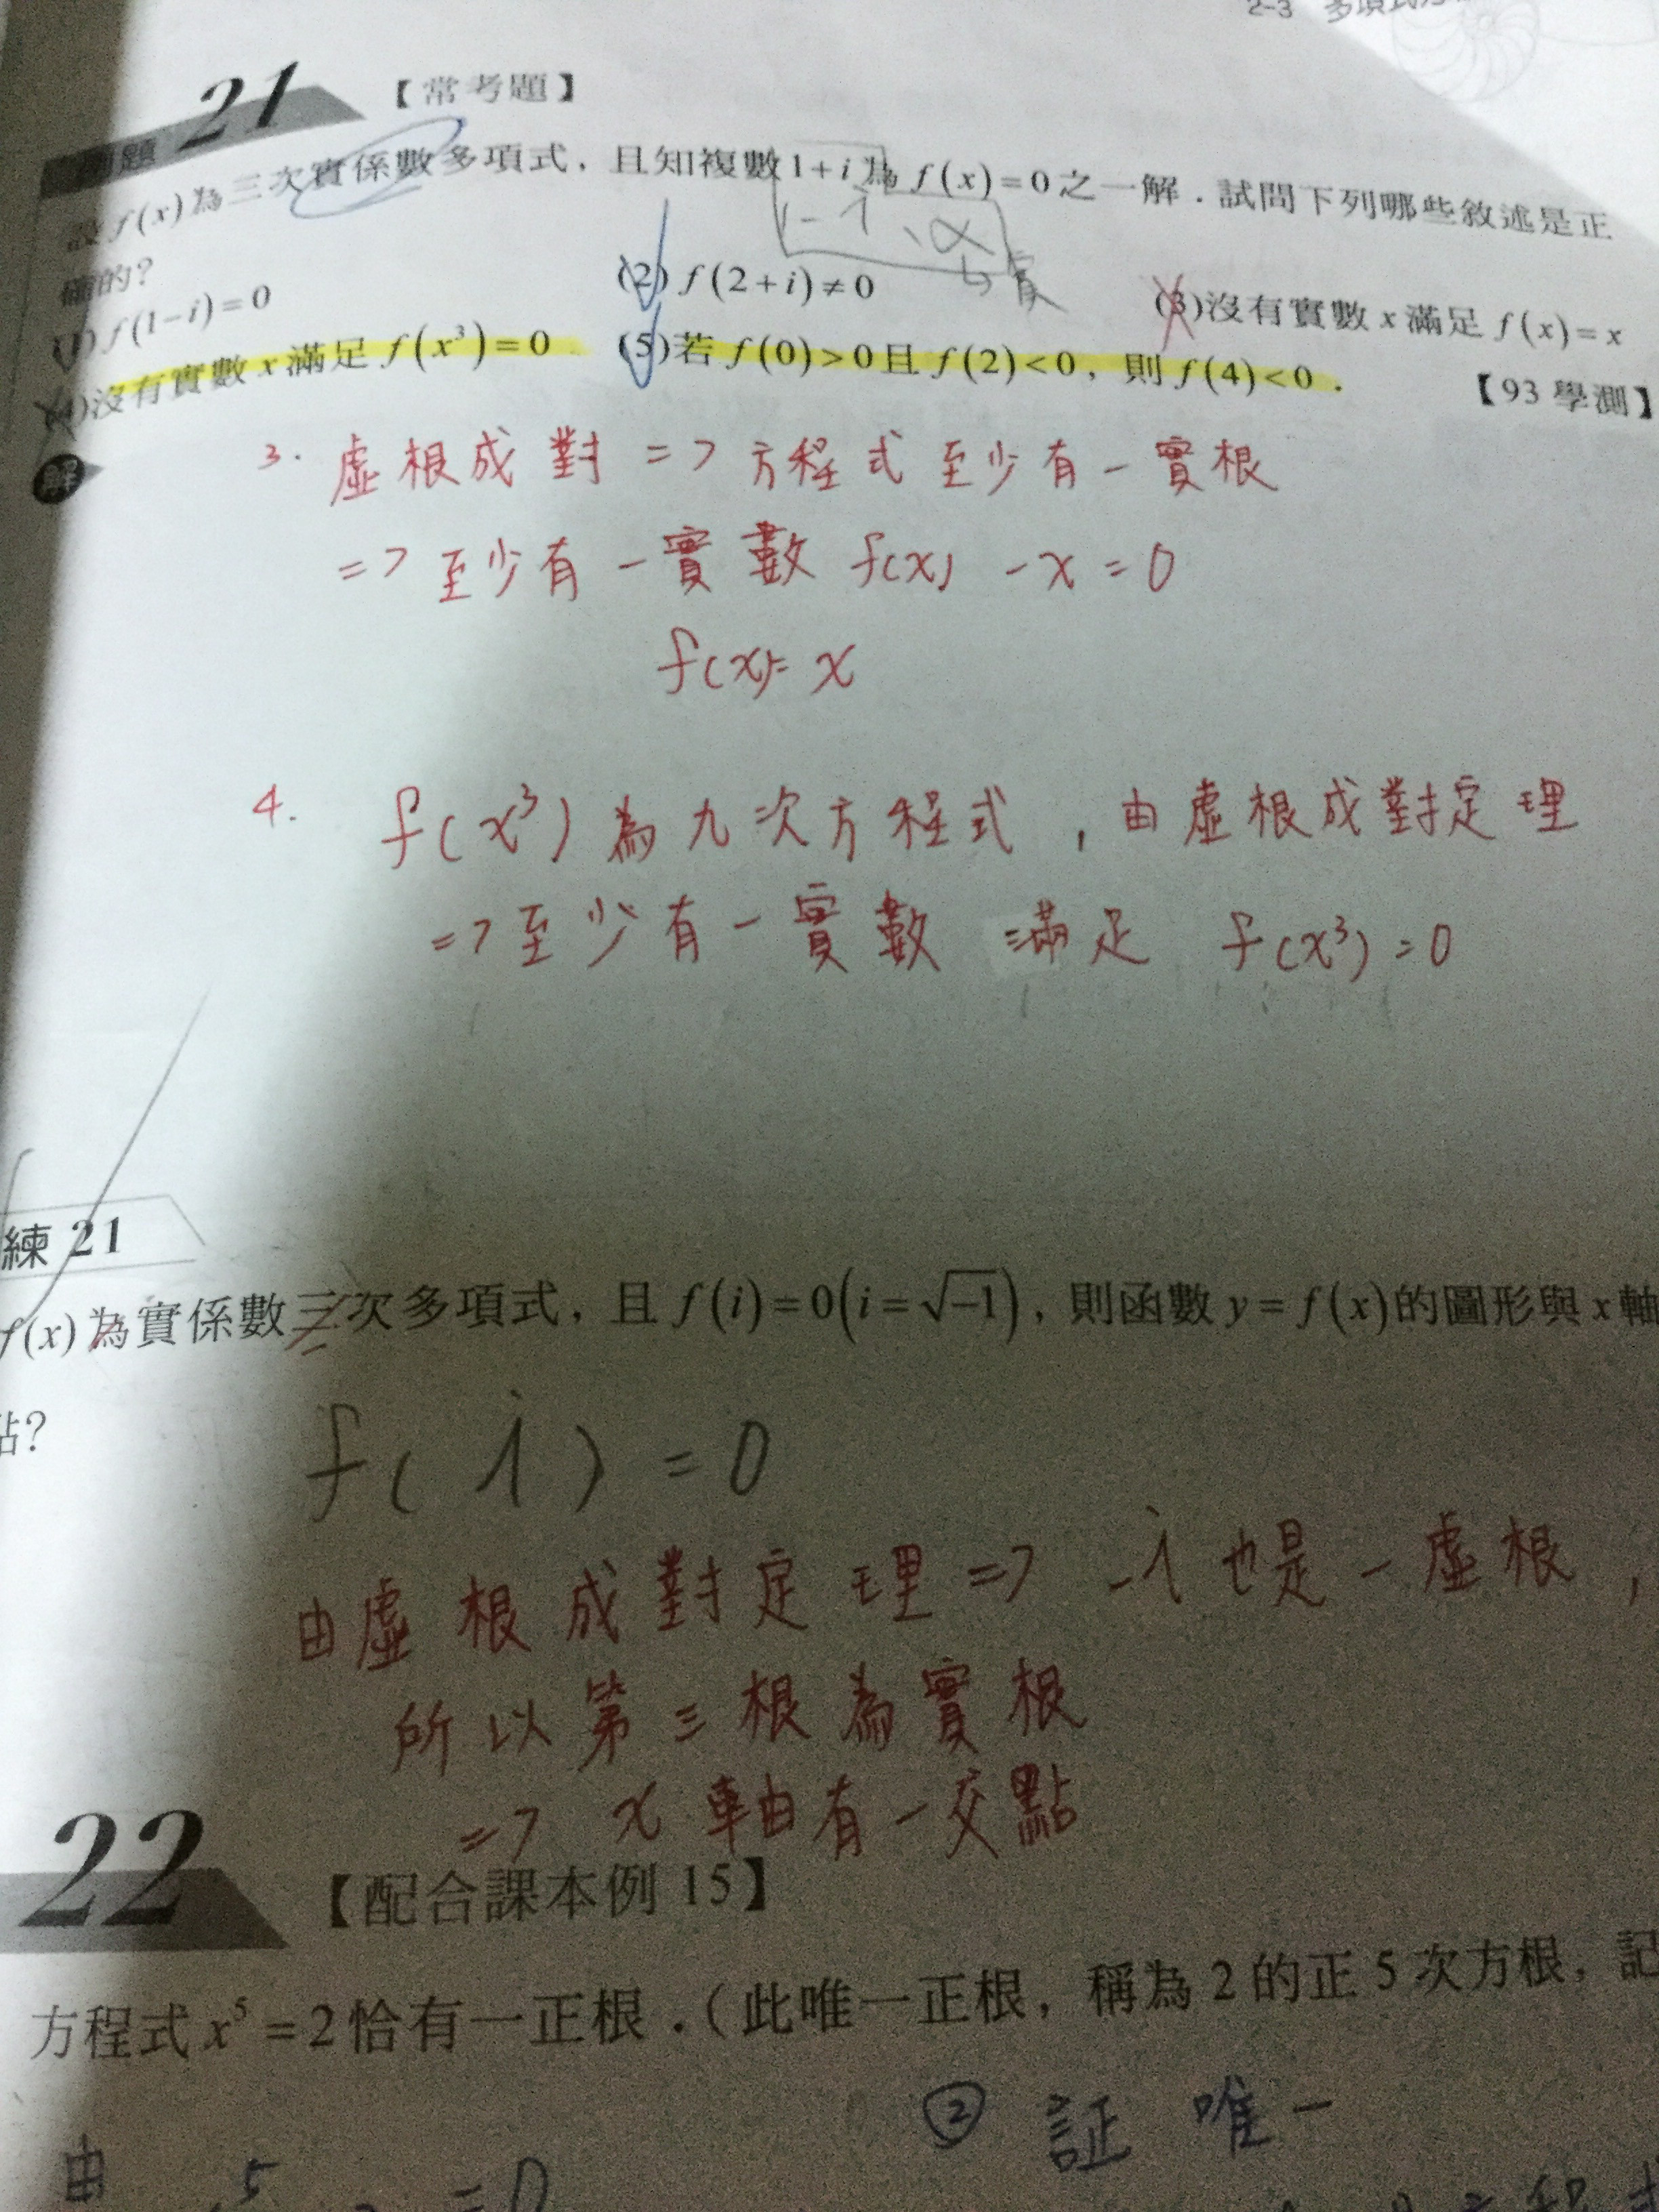 2-3 多項式
例題 21 【常考題】
設 f(x) 為三次實係數多項式，且知複數 1+i 為 f(x)=0 之一解．試問下列哪些敘述是正
1-i、α
↳實
確的？
(1) f(1−i)=0 (2) f(2+i)≠0 (3)沒有實數 x 滿足 f(x)=x
(4)沒有實數 x 滿足 f(x³)=0 (5)若 f(0)>0 且 f(2)<0，則 f(4)<0． 【93 學測】
解
3. 虛根成對 => 方程式至少有一實根
=> 至少有一實數 f(x) - x = 0
f(x) = x
4. f(x³) 為九次方程式，由虛根成對定理
=> 至少有一實數 滿足 f(x³) = 0
練 21
f(x) 為實係數三次多項式，且 f(i)=0(i=√−1)，則函數 y=f(x) 的圖形與 x 軸
點？
f( i ) = 0
由虛根成對定理 => -i 也是一虛根，
所以第三根為實根
=> x 軸有一交點
22 【配合課本例 15】
方程式 x⁵=2 恰有一正根．(此唯一正根，稱為 2 的正 5 次方根，記
② 証 唯一
由